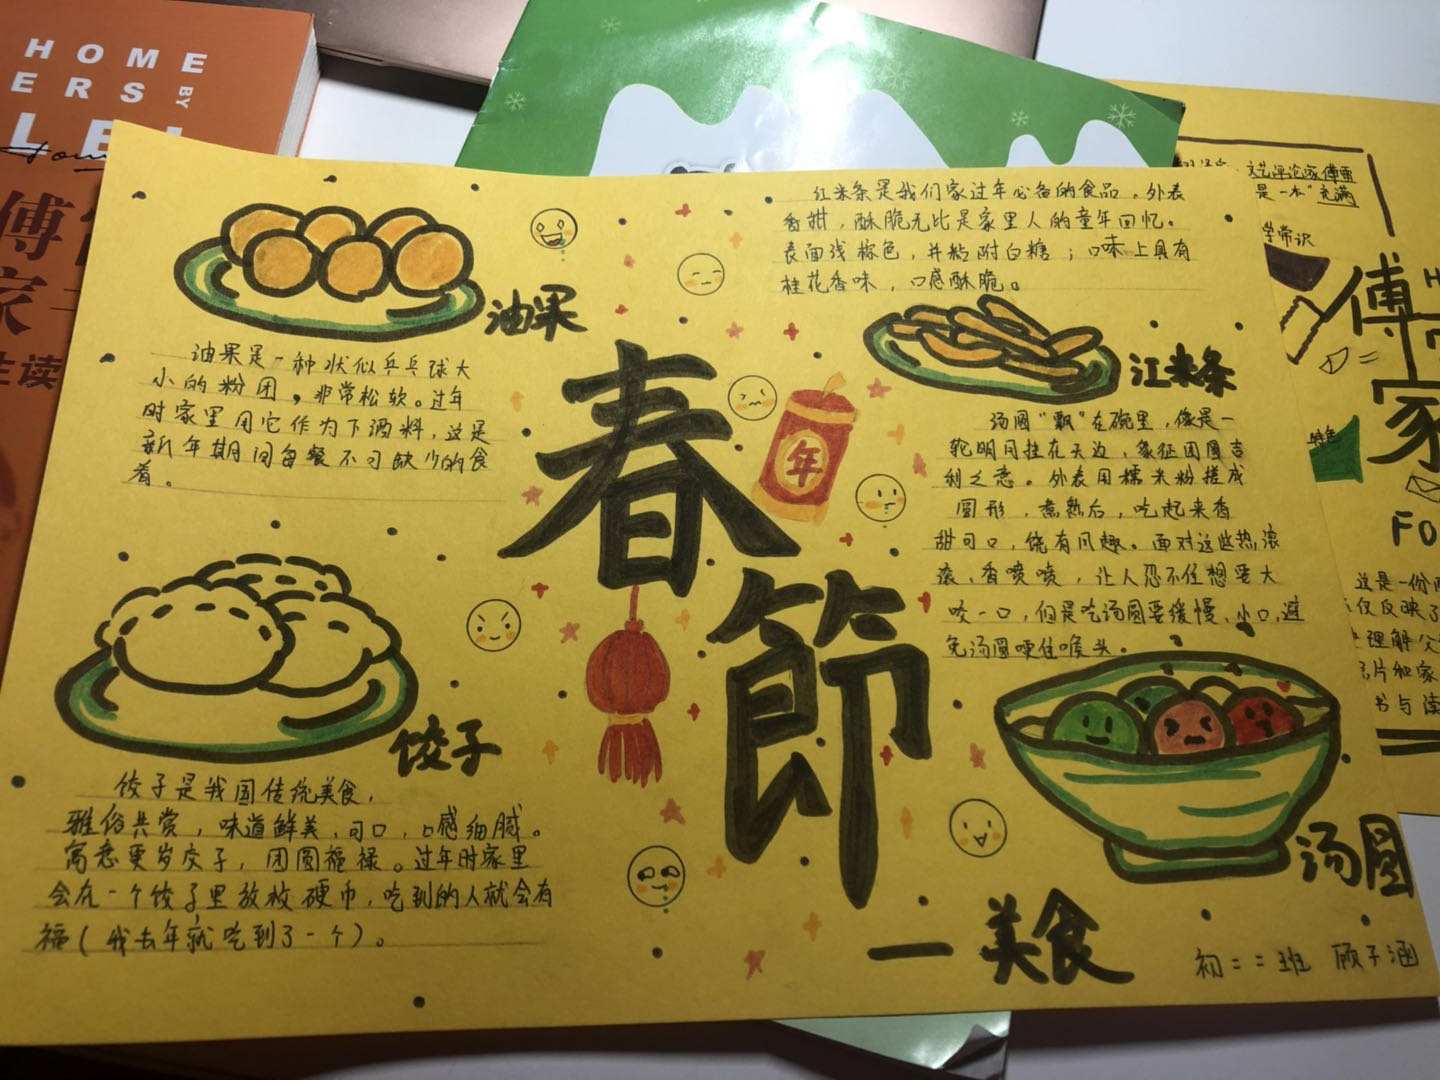 HOME
ERS BY
LEI
傅
家
生读
油果
油果是一种状似乒乓球大
小的粉团，非常松软。过年
时家里用它作为下酒料，这是
新年期间每餐不可缺少的食
肴。
饺子
饺子是我国传统美食，
雅俗共赏，味道鲜美，可口，口感细腻。
寓意更岁交子，团圆福禄。过年时家里
会在一个饺子里放枚硬币，吃到的人就会有
福（我去年就吃到了一个）。
春
節
年
一美食
红米条是我们家过年必备的食品。外表
香甜，酥脆无比是家里人的童年回忆。
表面浅棕色，并粘附白糖；口味上具有
桂花香味，口感酥脆。
江米条
汤圆“飘”在碗里，像是一
轮明月挂在天边，象征团圆吉
利之意。外表用糯米粉搓成
圆形，煮熟后，吃起来香
甜可口，饶有风趣。面对这些热滚
滚，香喷喷，让人忍不住想要大
咬一口，但是吃汤圆要缓慢，小口，避
免汤圆哽住喉头。
汤圆
初二二班 顾子涵
文艺评论家傅雷
是一本“充满
学常识
傅
家
FO
这是一份
仅反映了
理解父
片和家
书与读